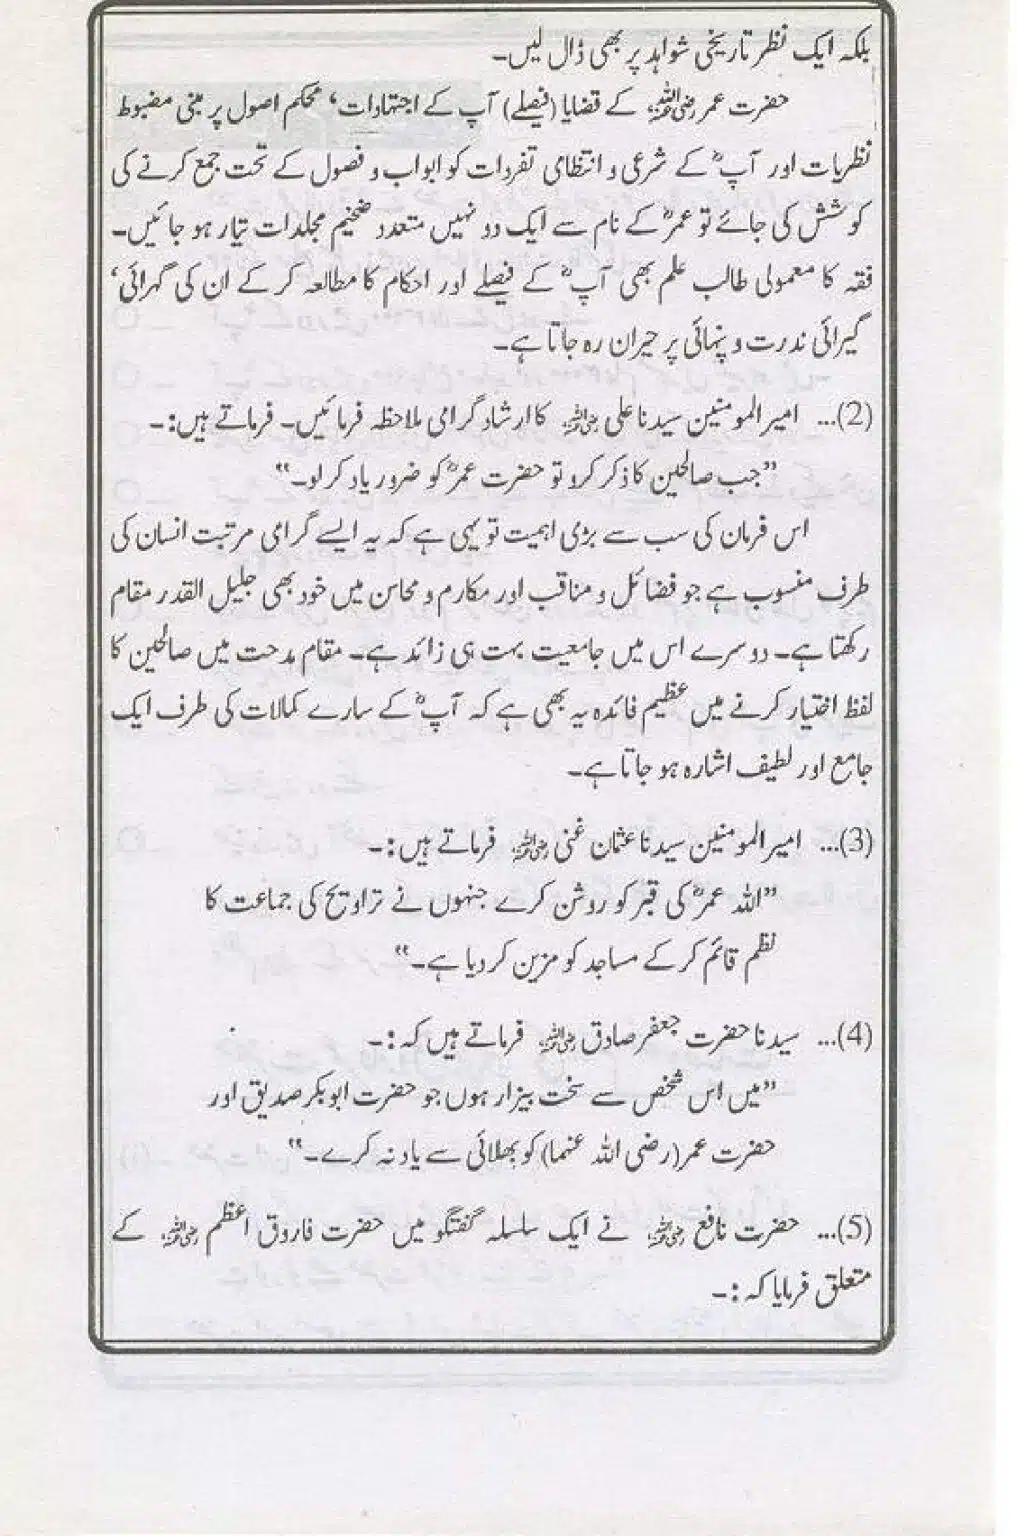 بلکہ ایک نظر تاریخی شواہد پر بھی ڈال لیں۔
حضرت عمر رضی اللہ عنہ کے قضایا (فیصلے) آپ کے اجتہادات، محکم اصول پر مبنی مضبوط
نظریات اور آپؓ کے شرعی و انتظامی تفردات کو ابواب و فصول کے تحت جمع کرنے کی
کوشش کی جائے تو عمرؓ کے نام سے ایک دو نہیں متعدد ضخیم مجلدات تیار ہو جائیں۔
فقہ کا معمولی طالب علم بھی آپؓ کے فیصلے اور احکام کا مطالعہ کر کے ان کی گہرائی،
گیرائی ندرت و پنہائی پر حیران رہ جاتا ہے۔
(2)... امیر المومنین سیدنا علی رضی اللہ عنہ کا ارشاد گرامی ملاحظہ فرمائیں۔ فرماتے ہیں:۔
”جب صالحین کا ذکر کرو تو حضرت عمرؓ کو ضرور یاد کر لو۔“
اس فرمان کی سب سے بڑی اہمیت تو یہی ہے کہ یہ ایسے گرامی مرتبت انسان کی
طرف منسوب ہے جو فضائل و مناقب اور مکارم و محاسن میں خود بھی جلیل القدر مقام
رکھتا ہے۔ دوسرے اس میں جامعیت بہت ہی زائد ہے۔ مقام مدحت میں صالحین کا
لفظ اختیار کرنے میں عظیم فائدہ یہ بھی ہے کہ آپؓ کے سارے کمالات کی طرف ایک
جامع اور لطیف اشارہ ہو جاتا ہے۔
(3)... امیر المومنین سیدنا عثمان غنی رضی اللہ عنہ فرماتے ہیں:۔
”اللہ عمرؓ کی قبر کو روشن کرے جنہوں نے تراویح کی جماعت کا
نظم قائم کر کے مساجد کو مزین کر دیا ہے۔“
(4)... سیدنا حضرت جعفر صادق رضی اللہ عنہ فرماتے ہیں کہ:۔
”میں اس شخص سے سخت بیزار ہوں جو حضرت ابوبکر صدیق اور
حضرت عمر (رضی اللہ عنہما) کو بھلائی سے یاد نہ کرے۔“
(5)... حضرت نافع رضی اللہ عنہ نے ایک سلسلہ گفتگو میں حضرت فاروق اعظم رضی اللہ عنہ کے
متعلق فرمایا کہ:۔